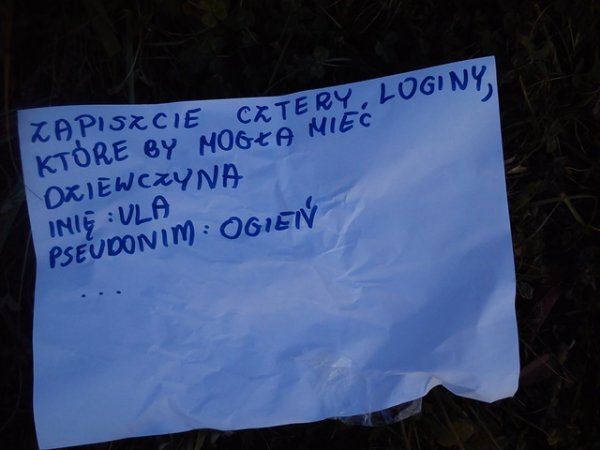 ZAPISZCIE CZTERY LOGINY,
KTÓRE BY MOGŁA MIEĆ
DZIEWCZYNA
IMIĘ: ULA
PSEUDONIM: OGIEŃ
...